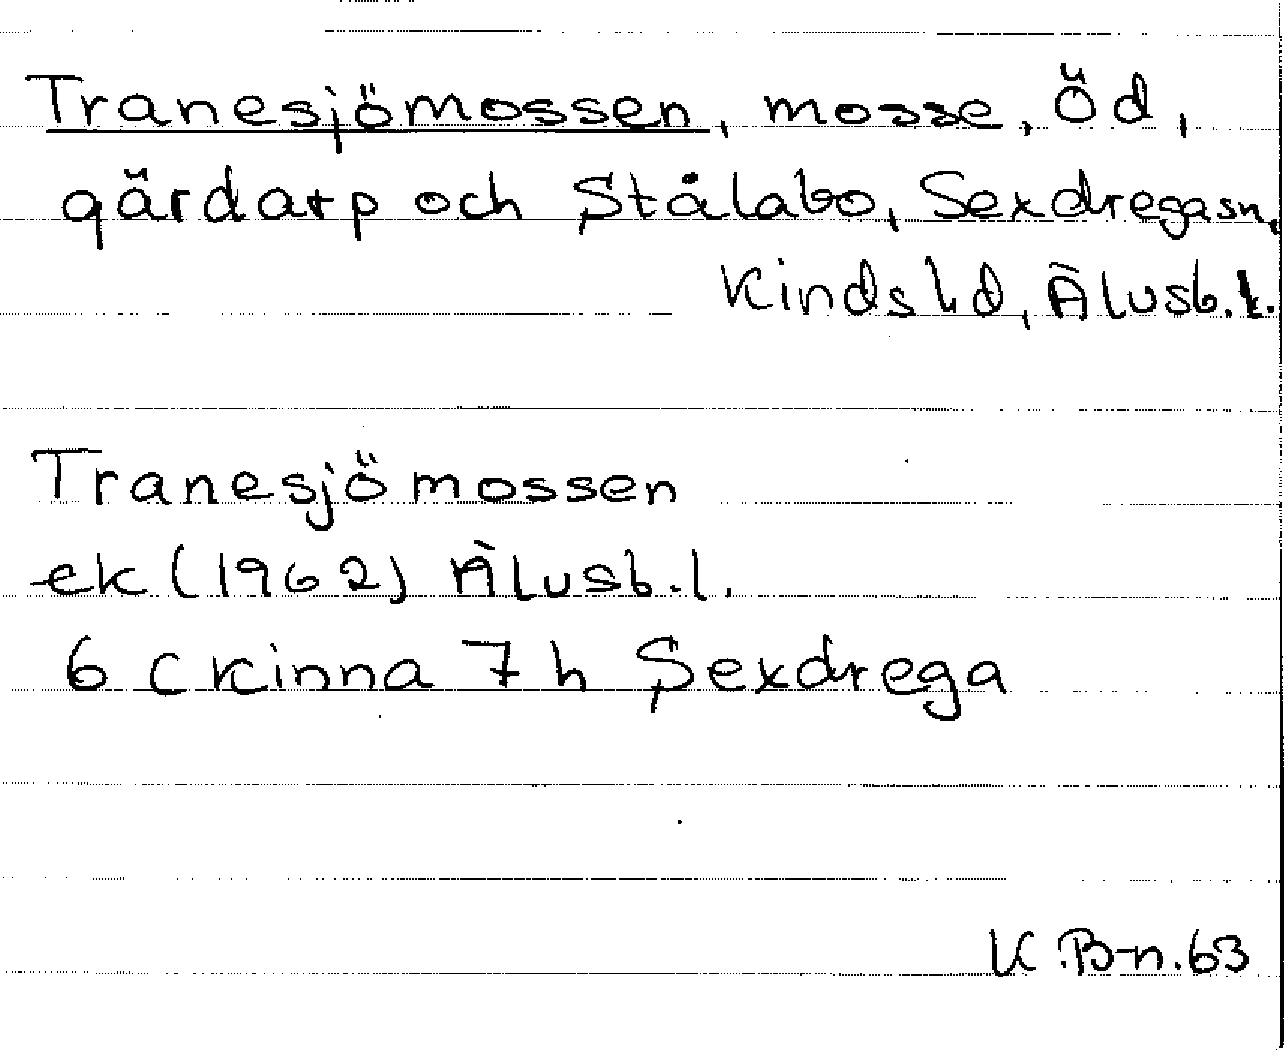 Tranesjömossen, mosse, Öd,
gärdarp och Stålabo, Sexdrega sn,
Kinds hd, Älvsb. l.
Tranesjömossen
ek (1962) Älvsb. l.
6 C Kinna 7 h Sexdrega
K. B-n. 63